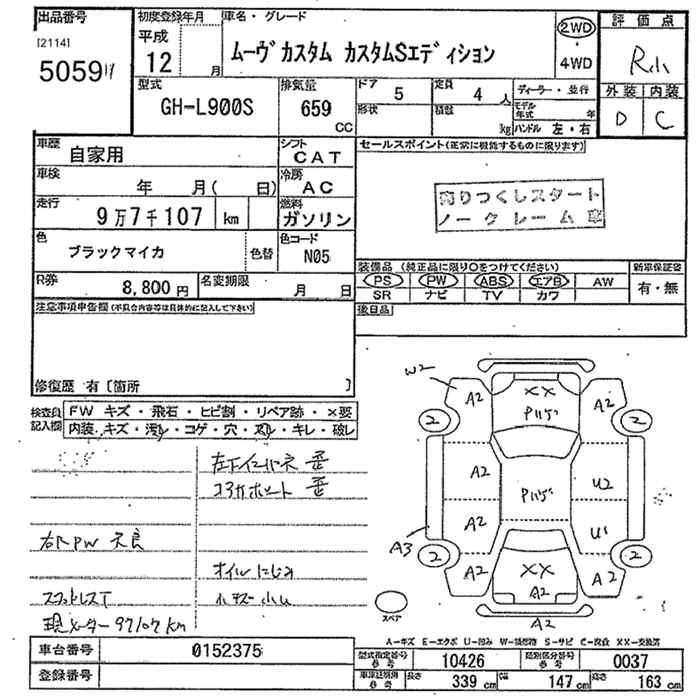 出品番号
[2114]
5059
初度登録年月
平成
12
月
車名・グレード
ムーヴカスタム カスタムSエディション
2WD
・
4WD
評価点
R小
外装
内装
D
C
型式
GH-L900S
排気量
659
CC
ドア
5
形状
定員
4
人
積載
kg
ディーラー・並行
モデル年式
年
ハンドル 左・右
車歴
自家用
シフト
CAT
車検
年 月( 日)
冷房
AC
走行
9万7千107
km
燃料
ガソリン
色
ブラックマイカ
色替
色コード
N05
R券
8,800円
名変期限
月 日
セールスポイント(正常に機能するものに限ります)
売りつくしスタート
ノークレーム車
装備品 (純正品に限り○をつけてください)
PS
PW
ABS
エアB
AW
SR
ナビ
TV
カワ
新車保証書
有・無
後日品
注意事項申告欄(不具合内容等は具体的に記入して下さい)
修復歴 有 [箇所 ]
検査員記入欄
FW キズ・飛石・ヒビ割・リペア跡・×要
内装、キズ・汚レ・コゲ・穴・スレ・キレ・破レ
歪
コアサポート 歪
右F PW 不良
オイルにじみ
スペアタイヤレス
現メーター 97107 km
W2
A2
××
Pハゲ
A2
2
2
A2
Pハゲ
U2
A2
U1
A3
2
2
A2
××
A2
A2
A2
スペア
A-キズ E-エクボ U-凹み W-補修跡 S-サビ C-腐食 XX-交換済
車台番号
0152375
登録番号
型式指定番号
参考
10426
類別区分番号
参考
0037
車車証明用
参考
長さ
339 cm
幅
147 cm
高さ
163 cm